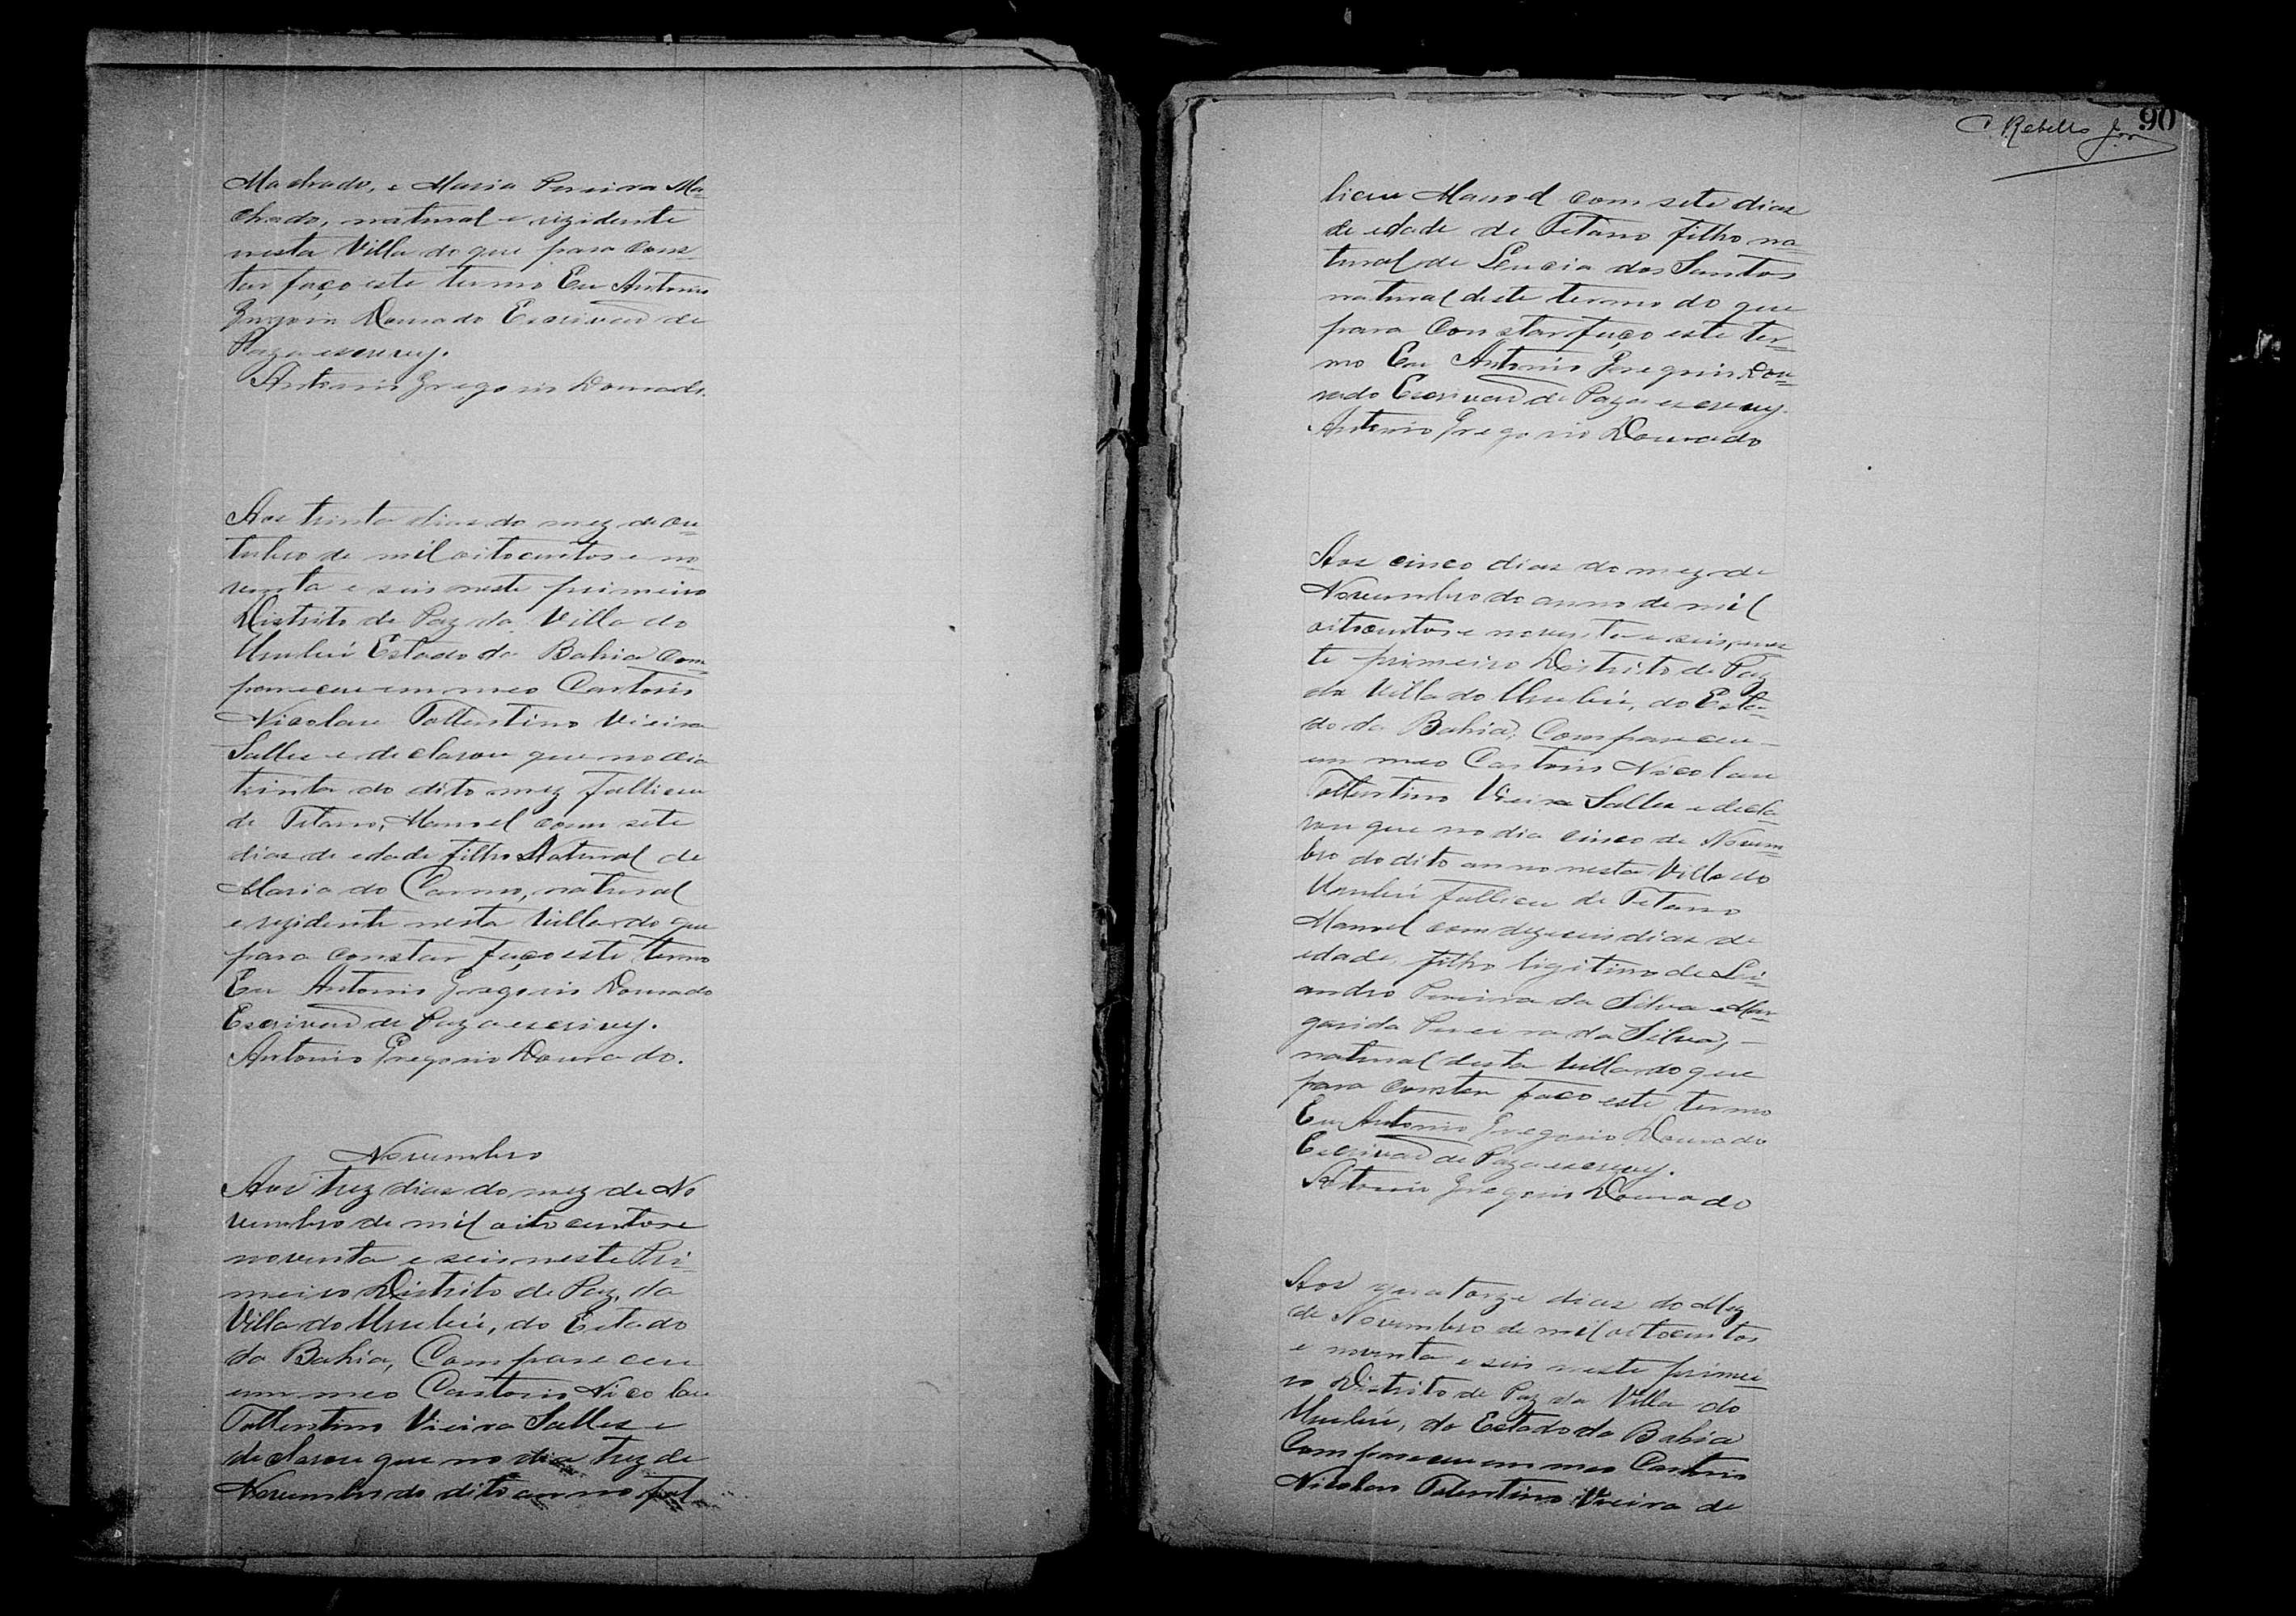 Machado, e Maria Pereira Ma=
chado, natural e rizidente
nesta Villa do que para cons=
tar faço este termo Eu Antonio
Gregorio Dourado Escrivão de
Paz a escrevy.
Antonio Gregorio Dourado.
Aos trinta dias do mez de Ou=
tubro de mil oitocentos e no=
venta e seis neste primeiro
Distrito de Paz da Villa do
Urubú Estado da Bahia com=
pareceu em meo Cartorio
Nicolau Tollentino Vieira
Salles e declarou que no dia
trinta do dito mez falliceu
de Tetano, Manoel com sete
dias de edade filho Natural de
Maria do Carmo, natural
e rezidente nesta Villa do que
para constar faço este termo
Eu Antonio Gregorio Dourado
Escrivão de Paz a escrivy.
Antonio Gregorio Dourado.
Novembro
Aos trez dias do mez de No
vembro de mil oito centos e
noventa e seis neste Pri=
meiro Distrito de Paz, da
Villa do Urubú, do Estado
da Bahia, Compareceu
em meo Cartorio Nicolau
Tollentino Vieira Salles e
declarou que no dia trez de
Novembro do dito anno fal
90
C. Rebello Jor
liceu Manoel com sete dias
de edade de Tetano filho na=
tural de Leucia dos Santos
natural deste termo do que
para Constar faço este ter=
mo Eu Antonio Gregorio Dou=
rado Escrivão de Paz a escrevy.
Antonio Gregorio Dourado
Aos cinco dias do mez de
Novembro do anno de mil
oitocentos e noventa e seis, nes=
te primeiro Distrito de Paz
da Villa do Urubú, do Esta=
do da Bahia, Compareceu –
em meo Cartorio Nicolau
Tollentino Vieira Salles e decla=
rou que no dia cinco de Novem=
bro do dito anno nesta Villa do
Urubú falliceu de Tetano
Manoel com dezeseis dias de
edade, filho ligitimo de Le=
andro Pereira da Silva e Mar=
garida Pereira da Silva, –
natural desta Villa do que
para constar faco este termo
Eu Antonio Gregorio Dourado
Escrivão de Paz a escrevy.
Antonio Gregorio Dourado
Aos quatorze dias do Mez
de Novembro de mil oitocentos
e noventa e seis neste primei=
ro Distrito de Paz da Villa do
Urubú, do Estado da Bahia
Compareceu em meo Cartorio
Nicolau Tolentino Vieira de